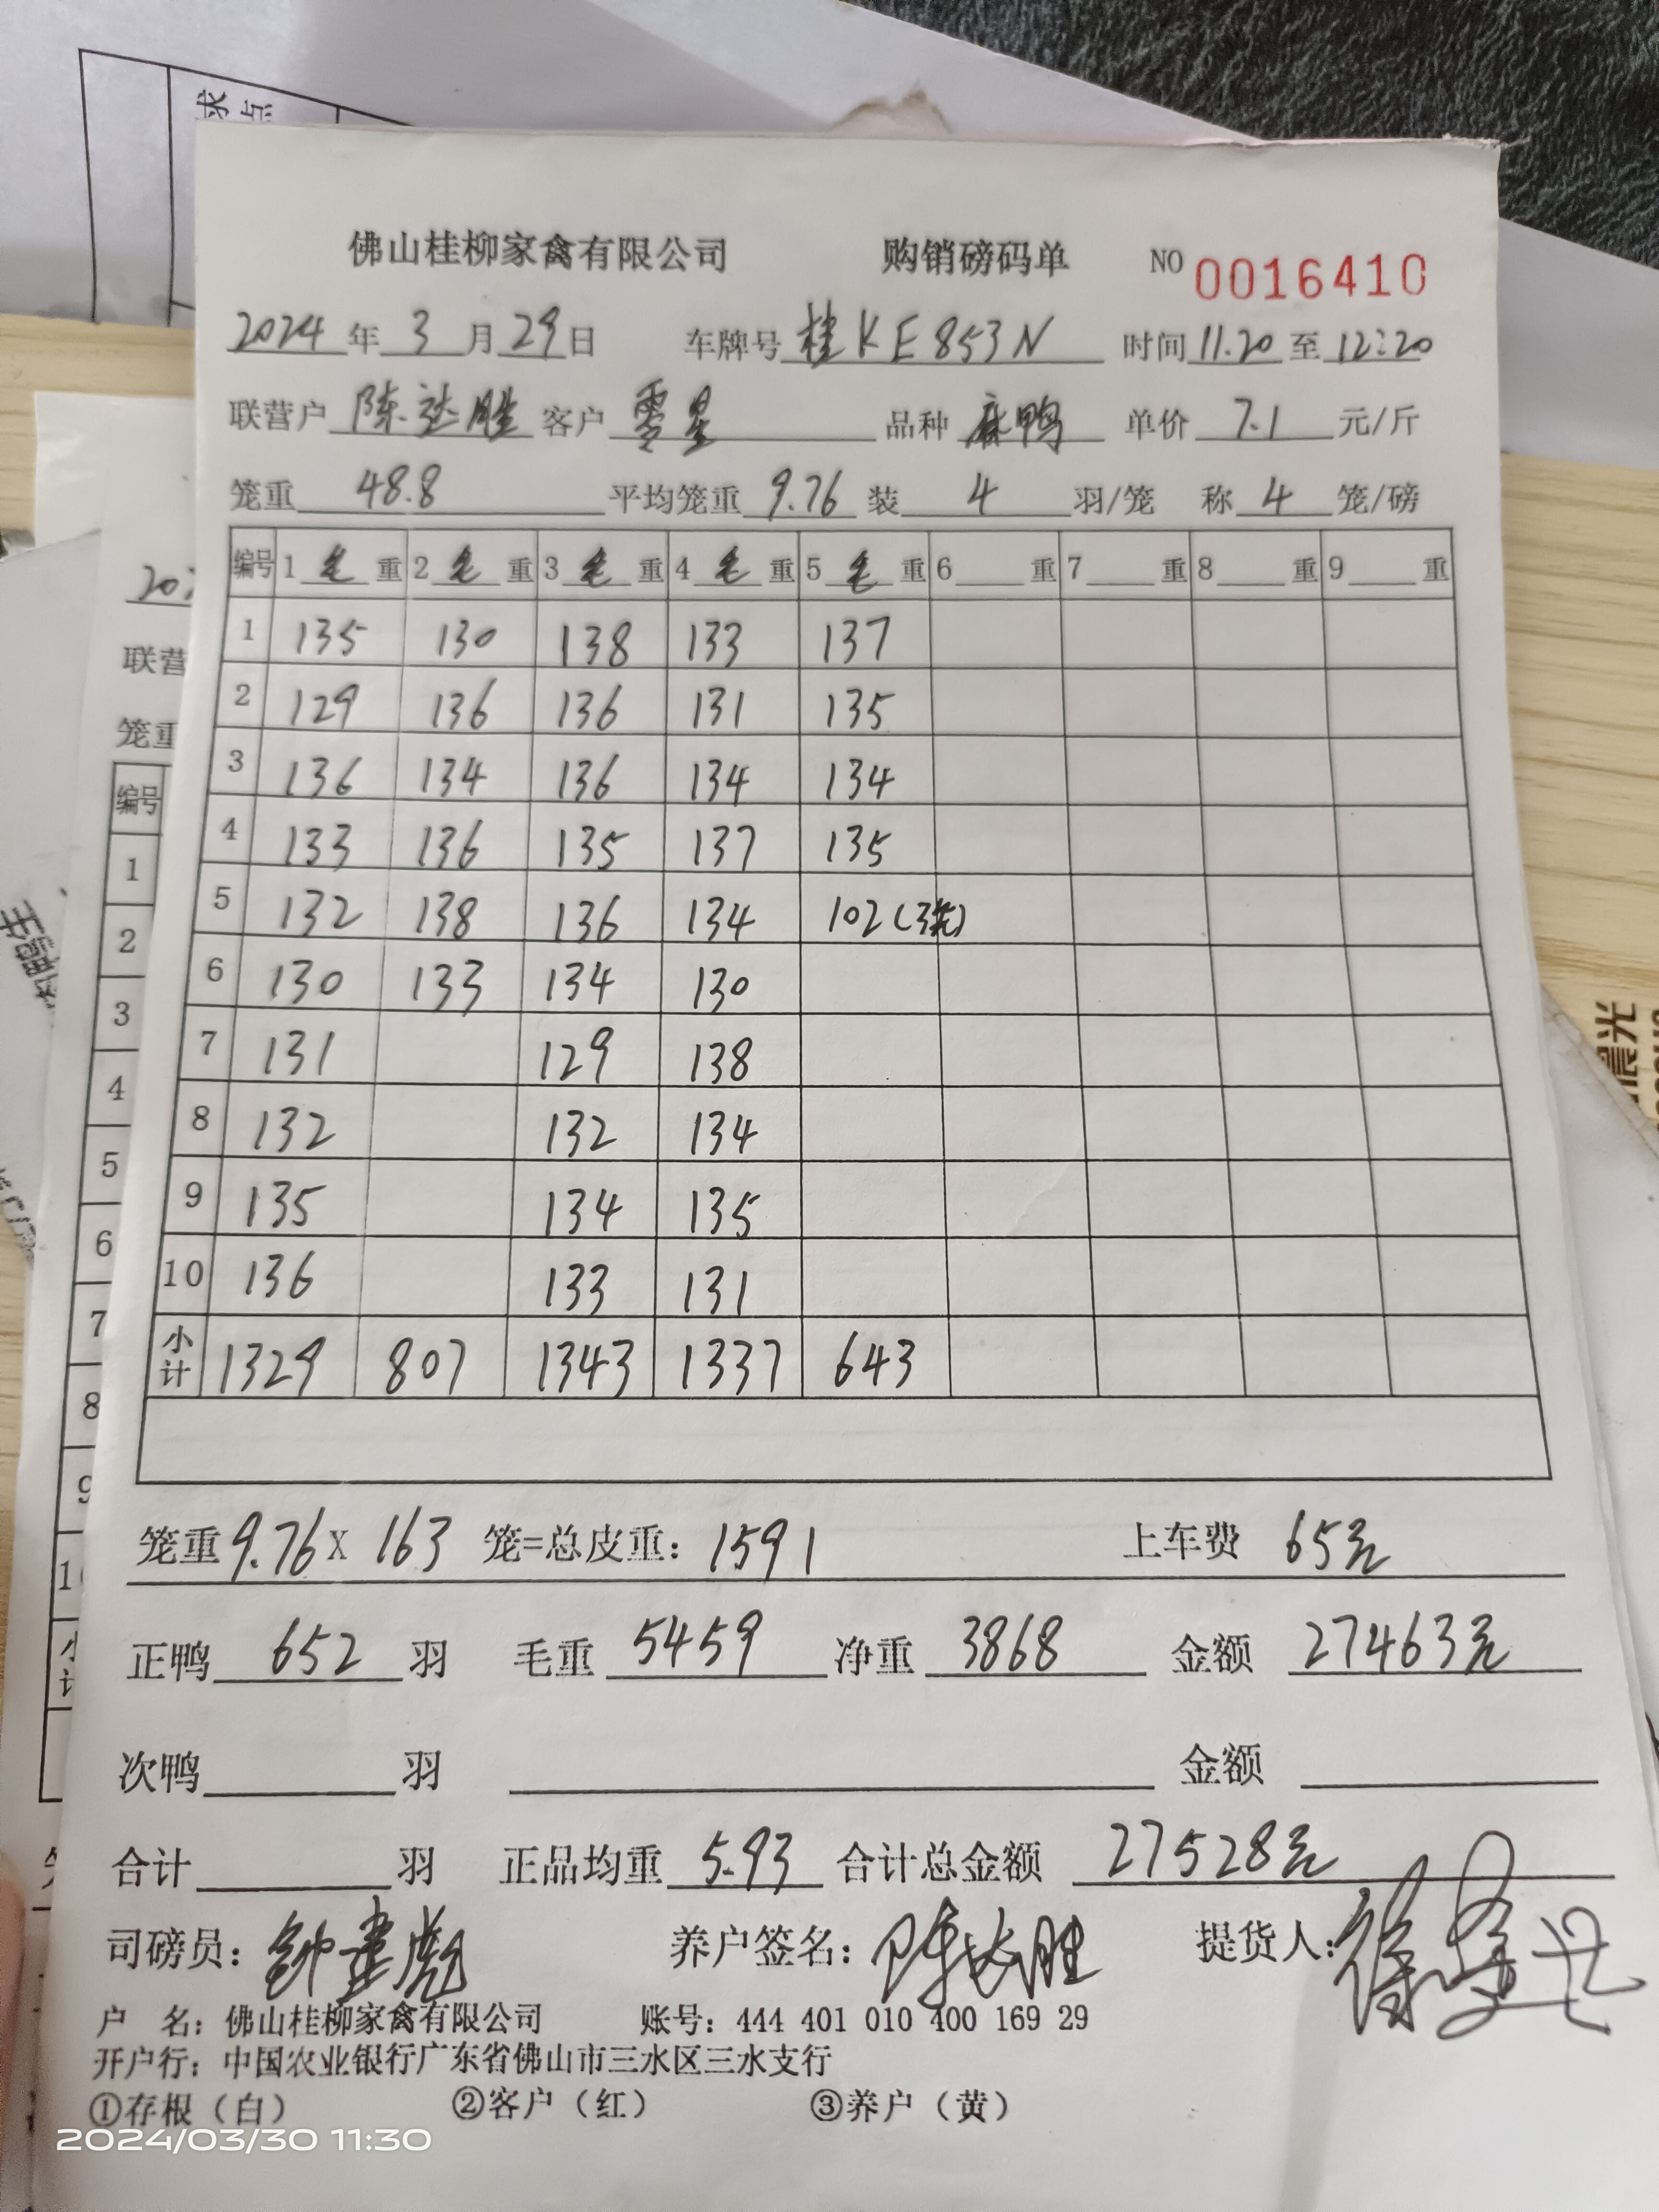 求点
佛山桂柳家禽有限公司 购销磅码单 NO 0016410
2024年3月29日 车牌号 桂KE853N 时间 11.20 至 12:20
联营户 陈达胜 客户 零星 品种 麻鸭 单价 7.1 元/斤
笼重 48.8 平均笼重 9.76 装 4 羽/笼 称 4 笼/磅
编号 1 毛 重 2 毛 重 3 毛 重 4 毛 重 5 毛 重 6 重 7 重 8 重 9 重
1 135 130 138 133 137
2 129 136 136 131 135
3 136 134 136 134 134
4 133 136 135 137 135
5 132 138 136 134 102(3笼)
6 130 133 134 130
7 131 129 138
8 132 132 134
9 135 134 135
10 136 133 131
小计 1329 807 1343 1337 643
笼重 9.76 X 163 笼=总皮重: 1591 上车费 65元
正鸭 652 羽 毛重 5459 净重 3868 金额 27463元
次鸭 羽 金额
合计 羽 正品均重 5.93 合计总金额 27528元
司磅员: 钟建彪 养户签名: 陈达胜 提货人:
户 名: 佛山桂柳家禽有限公司 账号: 444 401 010 400 169 29
开户行: 中国农业银行广东省佛山市三水区三水支行
①存根（白） ②客户（红） ③养户（黄）
2024/03/30 11:30
202
联营
笼重
编号
1
2
3
4
5
6
7
8
9
10
小计
晨光